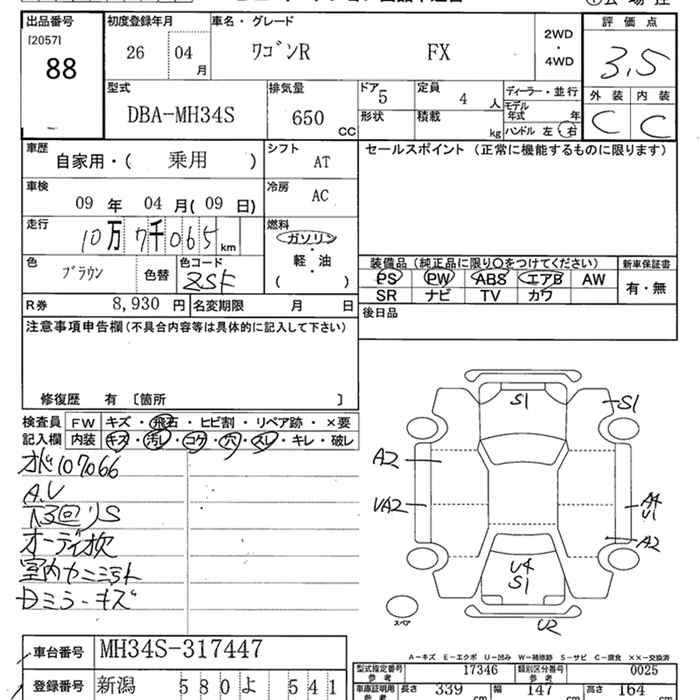 出品番号
[2057]
88
初度登録年月
26 04
月
車名・グレード
ワゴンR FX
2WD
・
4WD
評価点
3,5
外装 内装
C C
型式
DBA-MH34S
排気量
650
CC
ドア
5
定員
4 人
形状
積載
kg
ディーラー・並行
モデル
年式 年
ハンドル 左・右
車歴
自家用・( 乗用 )
シフト
AT
車検
09 年 04 月( 09 日)
冷房
AC
走行
10万7千065
km
燃料
ガソリン
・
軽・油
・
( )
色
ブラウン
色替
色コード
ZSF
R券 8,930 円
名変期限 月 日
セールスポイント (正常に機能するものに限ります)
装備品 (純正品に限り○をつけてください)
PS PW ABS エアB AW
SR ナビ TV カワ
新車保証書
有・無
後日品
注意事項申告欄 (不具合内容等は具体的に記入して下さい)
修復歴 有 〔箇所 〕
検査員
記入欄
FW キズ・飛石・ヒビ割・リペア跡・×要
内装 キズ・汚レ・コゲ・穴・スレ・キレ・破レ
107066
A,V
S
オーディオ欠
室内
キズ
S1
S1
A2
VA2
A4
U1
A2
U4
S1
U2
スペア
A-キズ E-エクボ U-凹み W-補修跡 S-サビ C-腐食 ××-交換済
車台番号 MH34S-317447
登録番号 新潟 580 よ 541
型式指定番号
参考
17346
類別区分番号
参考
0025
車庫証明用
参考
長さ 339 cm
幅 147 cm
高さ 164 cm